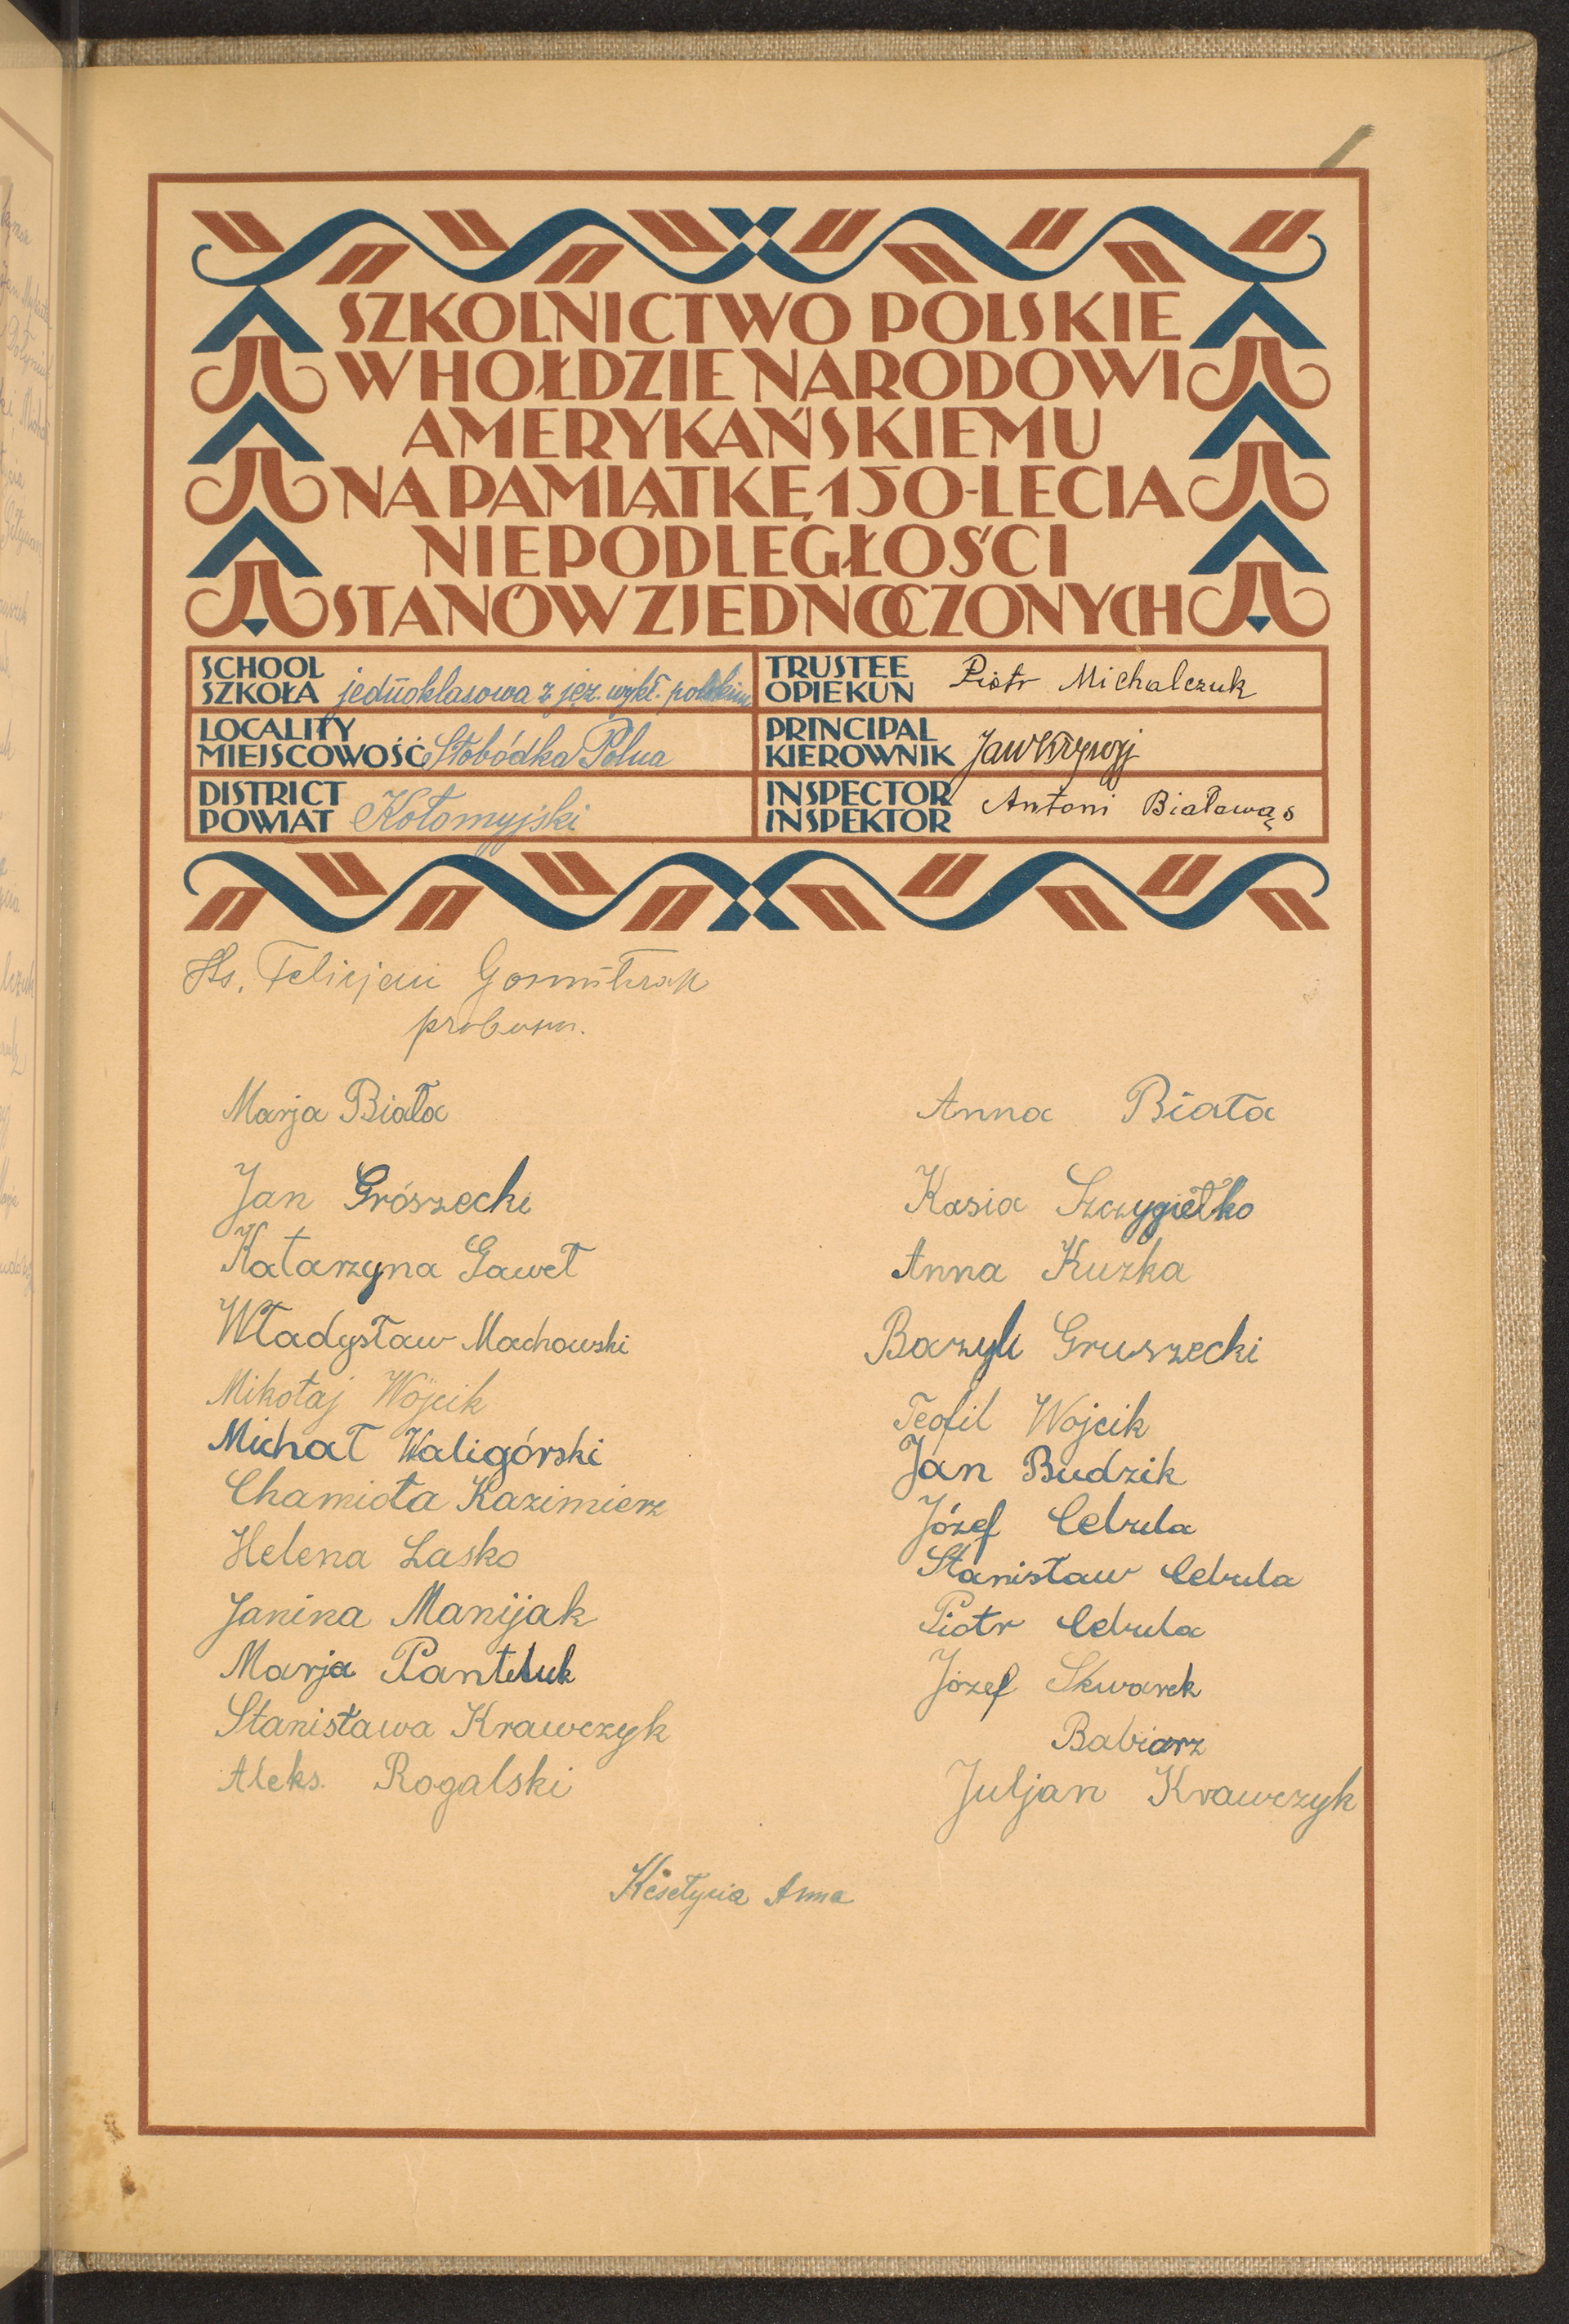 SZKOLNICTWO POLSKIE
W HOŁDZIE NARODOWI
AMERYKAŃSKIEMU
NA PAMIĄTKĘ 150-LECIA
NIEPODLEGŁOŚCI
STANÓW ZJEDNOCZONYCH
SCHOOL
SZKOŁA jednoklasowa z jęz. wykł. polskim
TRUSTEE
OPIEKUN Piotr Michalczuk
LOCALITY
MIEJSCOWOŚĆ Słobódka Polna
PRINCIPAL
KIEROWNIK
DISTRICT
POWIAT Kołomyjski
INSPECTOR
INSPEKTOR Antoni Białowąs
Ks. Felicjan
Marja Biała
Jan Grószecki
Katarzyna Gaweł
Władysław Machowski
Mikołaj Wójcik
Michał Waligórski
Chamioła Kazimierz
Helena Lasko
Janina Manijak
Marja Panteluk
Stanisława Krawczyk
Aleks. Rogalski
Anna Biała
Kasia Szczygiełko
Anna Kuzka
Bazyli Gruszecki
Teofil Wojcik
Jan Budzik
Józef Cebula
Stanisław Cebula
Piotr Cebula
Józef Skwarek
Babiarz
Juljan Krawczyk
Anna